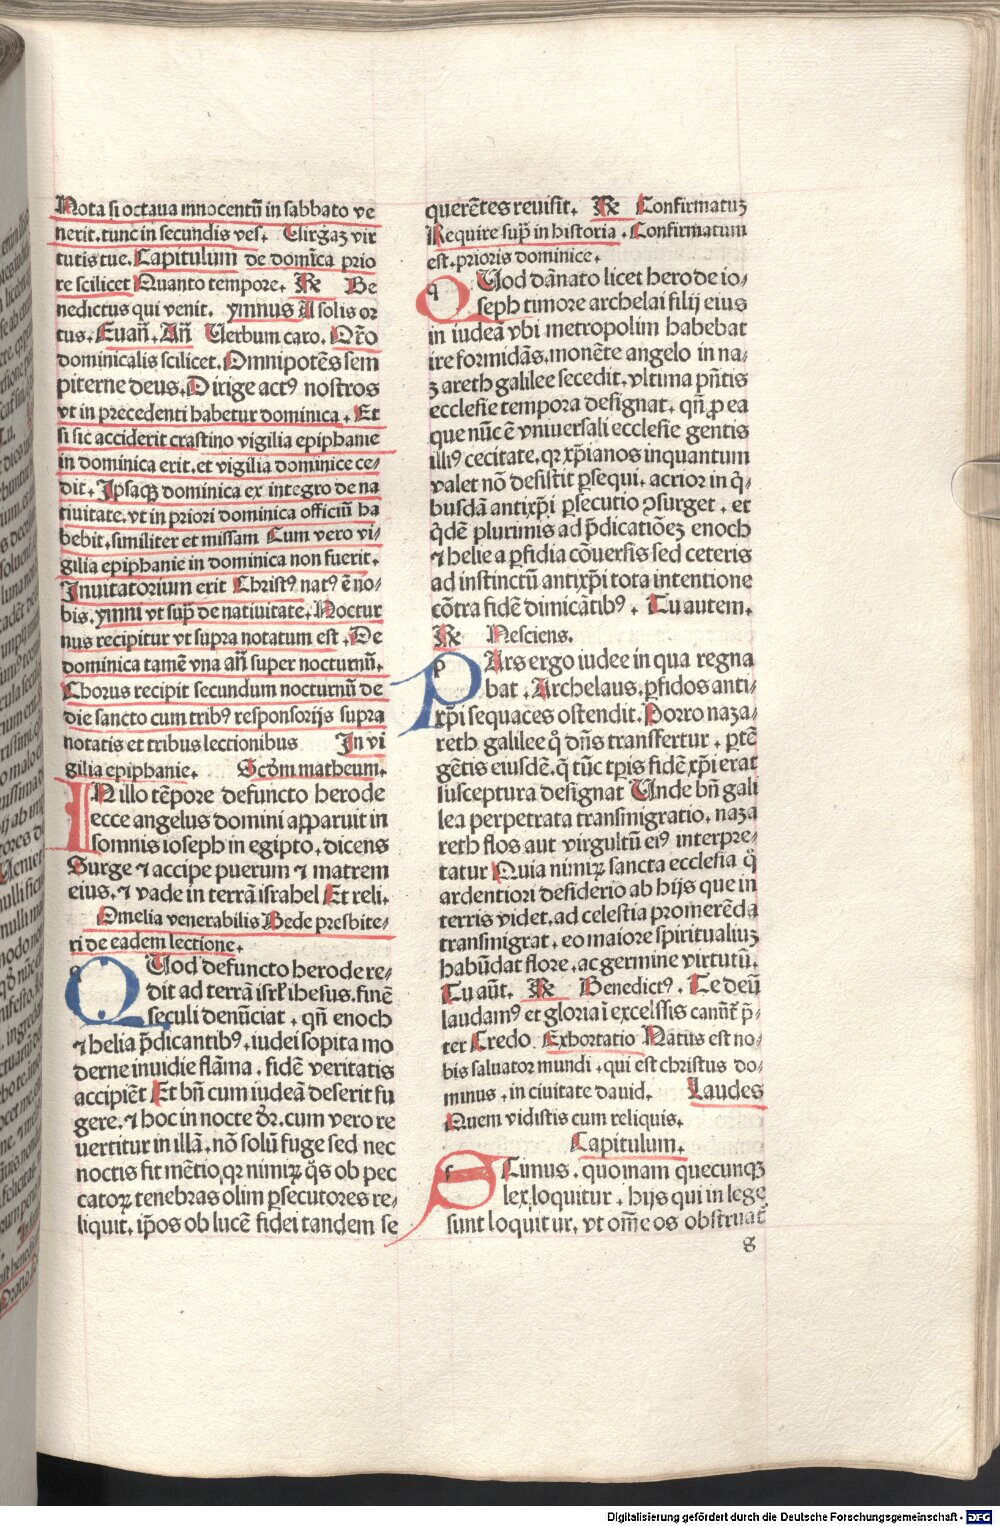 Nota si octaua innocentū in sabbato ve
nerit. tunc in secundis ves. Virgaȝ vir
tutis tue. Capitulum de domīca prio
re scilicet Quanto tempore. R̃ Be
nedictus qui venit. ymnus A solis or
tus. Euañ. Añ Verbum caro. Oro̅
dominicalis scilicet. Omnipotēs sem
piterne deus. Dirige actꝰ nostros
vt in precedenti habetur dominica. Et
si sic acciderit crastino vigilia epiphanie
in dominica erit. et vigilia dominice ce/
dit. Ipsaqꝫ dominica ex integro de na
tiuitate. vt in priori dominica officiū ha
bebit. similiter et missam Cum vero vi/
gilia epiphanie in dominica non fuerit.
Inuitatorium erit Christꝰ natꝰ ē no/
bis. ymni vt supͣ de natiuitate. Noctur
nus recipitur vt supra notatum est. De
dominica tamē vna añ super nocturnū.
Chorus recipit secundum nocturnū de
die sancto cum tribꝰ responsorijs supra
notatis et tribus lectionibus In vi
gilia epiphanie. Scd̄m matheum.
IN illo tēpore defuncto herode
ecce angelus domini apparuit in
somnis ioseph in egipto. dicens
Surge ⁊ accipe puerum ⁊ matrem
eius. ⁊ vade in terrā israhel Et reli.
Omelia venerabilis Bede presbite/
ri de eadem lectione.
QUod defuncto herode re/
dit ad terrā isrl̄ ihesus. finē
seculi denūciat. qñ enoch
⁊ helia p̄dicantibꝰ. iudei sopita mo
derne inuidie flāma. fidē veritatis
accipiēt Et bñ cum iudeā deserit fu
gere. ⁊ hoc in nocte dr̄. cum vero re
uertitur in illā. nō solū fuge sed nec
noctis fit mētio. qꝛ nimiꝝ q̊s ob pec
catoꝝ tenebras olim ꝑsecutores re/
liquit. ip̄os ob lucē fidei tandem se
querētes reuisit. R̃ Confirmatuȝ
Require supͣ in historia. Confirmatum
est. prioris dominice.
QUod dānato licet herode io/
seph timore archelai filij eius
in iudea vbi metropolim habebat
ire formidās. monēte angelo in na/
zareth galilee secedit. vltima p̄ntis
ecclesie tempora designat. qñ ꝓ ea
que nūc ē vniuersali ecclesie gentis
illiꝰ cecitate. qꝛ xp̄ianos inquantum
valet nō desistit ꝑsequi. acrior in q̇/
busdā antixp̄i ꝑsecutio ꝯsurget. et
q̇dē plurimis ad p̄dicatiōeȝ enoch
⁊ helie a ꝑfidia cōuersis sed ceteris
ad instinctū antixp̄i tota intentione
cōtra fidē dimicātibꝰ. Tu autem.
R̃ Nesciens.
PArs ergo iudee in qua regna
bat. Archelaus. ꝑfidos anti/
xp̄i sequaces ostendit. Porro naza/
reth galilee q̊ dn̄s transfertur. ꝑtē
gētis eiusdē. q̄ tūc tp̄is fidē xp̄i erat
susceptura designat Unde bñ gali
lea perpetrata transmigratio. naza
reth flos aut virgultū eiꝰ interpre/
tatur Quia nimiꝝ sancta ecclesia q̊
ardentiori desiderio ab hijs que in
terris videt. ad celestia promerēda
transmigrat. eo maiore spiritualiuȝ
habūdat flore. ac germine virtutū.
Tu aūt. R̃ Benedictꝰ. Te deū
laudamꝰ et gloria ī excelsis canūt̄ p̄/
ter Credo. Exhortatio Natus est no/
bis saluator mundi. qui est christus do/
minus. in ciuitate dauid. Laudes
Quem vidistis cum reliquis.
Capitulum.
SCimus. quoniam quecunqꝫ
lex loquitur. hijs qui in lege
sunt loquitur, vt ōme os obstruat̄
g
Digitalisierung gefördert durch die Deutsche Forschungsgemeinschaft - DFG